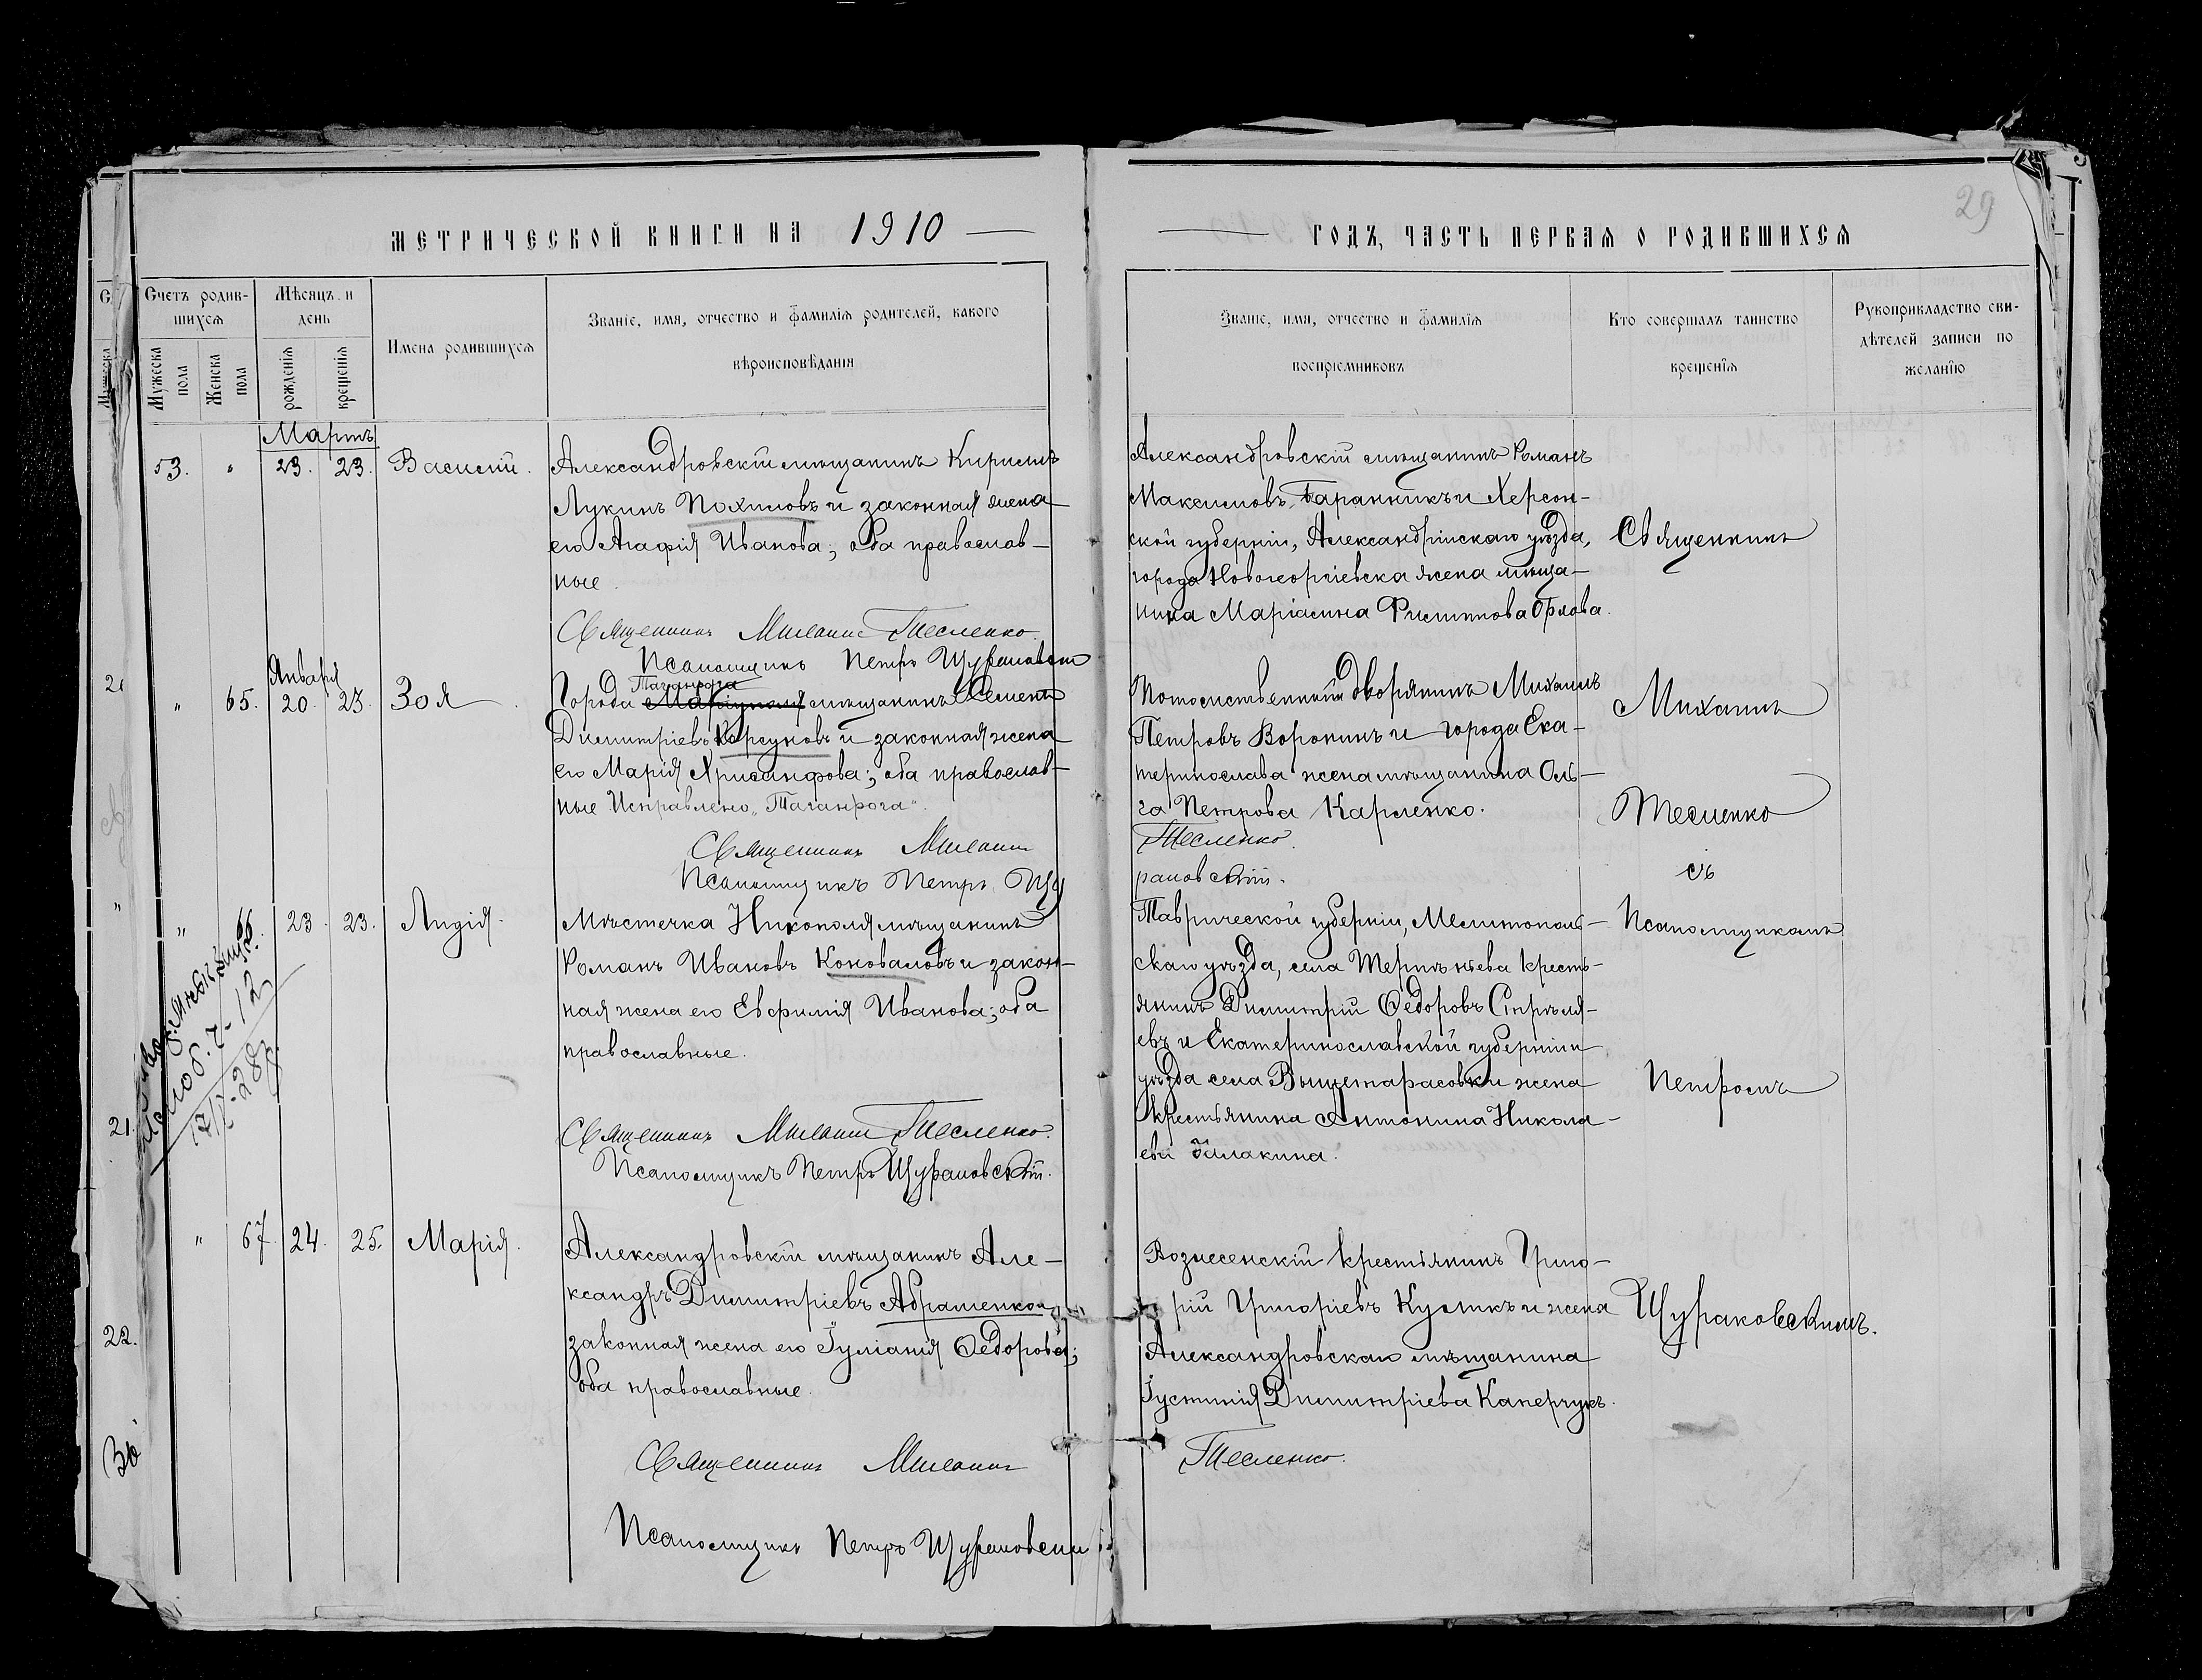 МЕТРИЧЕСКОЙ КНИГИ НА 1910
ГОДЪ, ЧАСТЬ ПЕРВАЯ О РОДИВШИХСЯ
29
Счетъ родив-
шихся
Мужеска пола
Женска пола
Мѣсяцъ и
день
рожденія
крещенія
Имена родившихся
Званіе, имя, отчество и фамилія родителей, какого
вѣроисповѣданія
Званіе, имя, отчество и фамилія
воспріемниковъ
Кто совершалъ таинство
крещенія
Рукоприкладство сви-
дѣтелей записи по
желанію
Мартъ
53. " 23. 23. Василій.
Александровскій мѣщанинъ Кириллъ
Лукинъ Похиловъ и законная жена
его Агафія Иванова; оба православ-
ные.
Священникъ Михаилъ Тесленко.
Псаломщикъ Петръ Щураковскій
Александровскій мѣщанинъ Романъ
Максимовъ Баранникъ и Херсон-
ской губерніи, Александрійскаго уѣзда,
города Новогеоргіевска жена мѣща-
нина Маріамна Филиппова Орлова.
Января
" 65. 20. 23. Зоя
Таганрога
Города Маріуполя мѣщанинъ Семенъ
Димитріевъ Корсуновъ и законная жена
его Марія Хрисанфова; оба православ-
ные. Исправлено „Таганрога".
Священникъ Михаилъ Тесленко.
Псаломщикъ Петръ Щураковскій.
Потомственный дворянинъ Михаилъ
Петровъ Воронинъ и города Ека-
теринослава жена мѣщанина Оль-
га Петрова Карпенко.
" 66. 23. 23. Лидія.
Мѣстечка Никополя мѣщанинъ
Романъ Ивановъ Коноваловъ и закон-
ная жена его Евфимія Иванова; оба
православные.
Священникъ Михаилъ Тесленко.
Псаломщикъ Петръ Щураковскій.
Таврической губерніи, Мелитополь-
скаго уѣзда, села Терпѣньева кресть-
янинъ Димитрій Ѳедоровъ Стрѣля-
евъ и Екатеринославской губерніи и
уѣзда села Вышетарасовки жена
крестьянина Антонина Никола-
ева Балакина.
" 67. 24. 25. Марія.
Александровскій мѣщанинъ Але-
ксандръ Димитріевъ Абраменко и
законная жена его Іуліанія Ѳедорова;
оба православные.
Священникъ Михаилъ Тесленко.
Псаломщикъ Петръ Щураковскій
Вознесенскій крестьянинъ Григо-
рій Григоріевъ Куликъ и жена
Александровскаго мѣщанина
Іустинія Димитріева Каперчукъ.
Священникъ
Михаилъ
Тесленко
съ
Псаломщикомъ
Петромъ
Щураковскимъ.
21.
22.